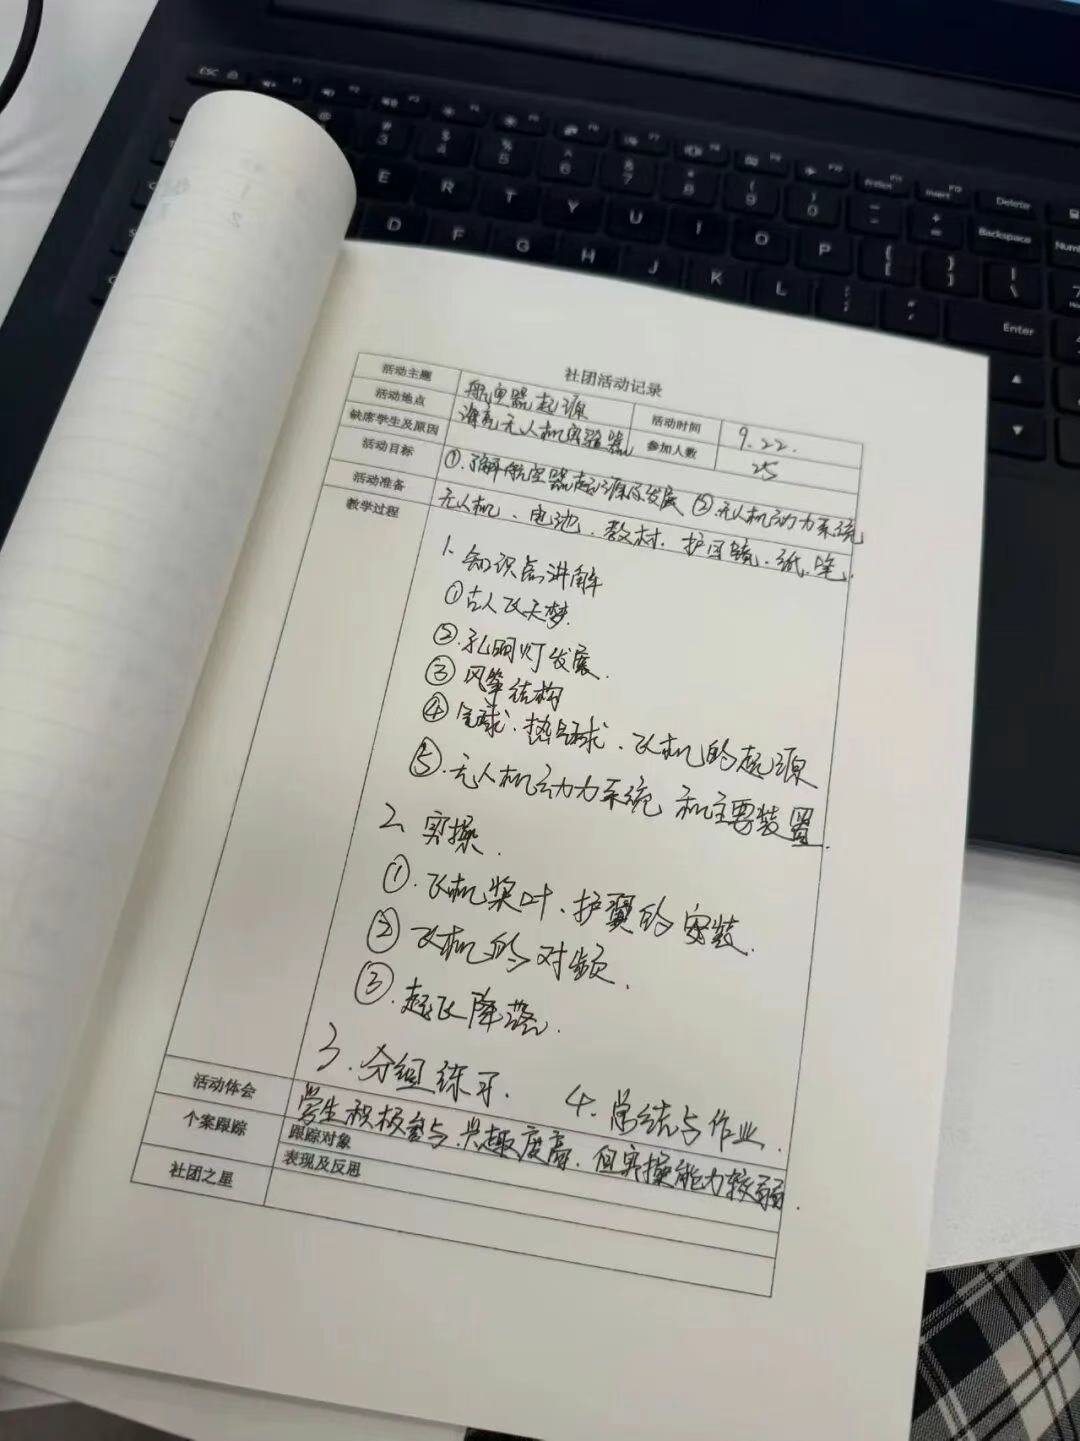 社团活动记录
活动主题 航空器起源 活动时间 9.22.
活动地点 无人机实验 参加人数 25
缺席学生及原因
活动目标 ①.了解航空器起源及发展 ②.无人机动力系统
活动准备 无人机、电池、教材、护目镜、纸、笔.
教学过程
1. 知识点讲解
①古人飞天梦.
②.孔明灯发展.
③ 风筝结构
④ 气球.热气球.飞机的起源
⑤.无人机动力系统 和主要装置.
2、实操.
①.飞机桨叶、护翼的安装.
② 飞机的对频.
③.起飞降落.
3.分组练习. 4.总结与作业.
活动体会 学生积极参与.兴趣度高.但实操能力较弱.
个案跟踪 跟踪对象
表现及反思
社团之星
ESC
E R T Y U I O P
D F G H J K L
PrtScr Insert Delete
Backspace
Enter